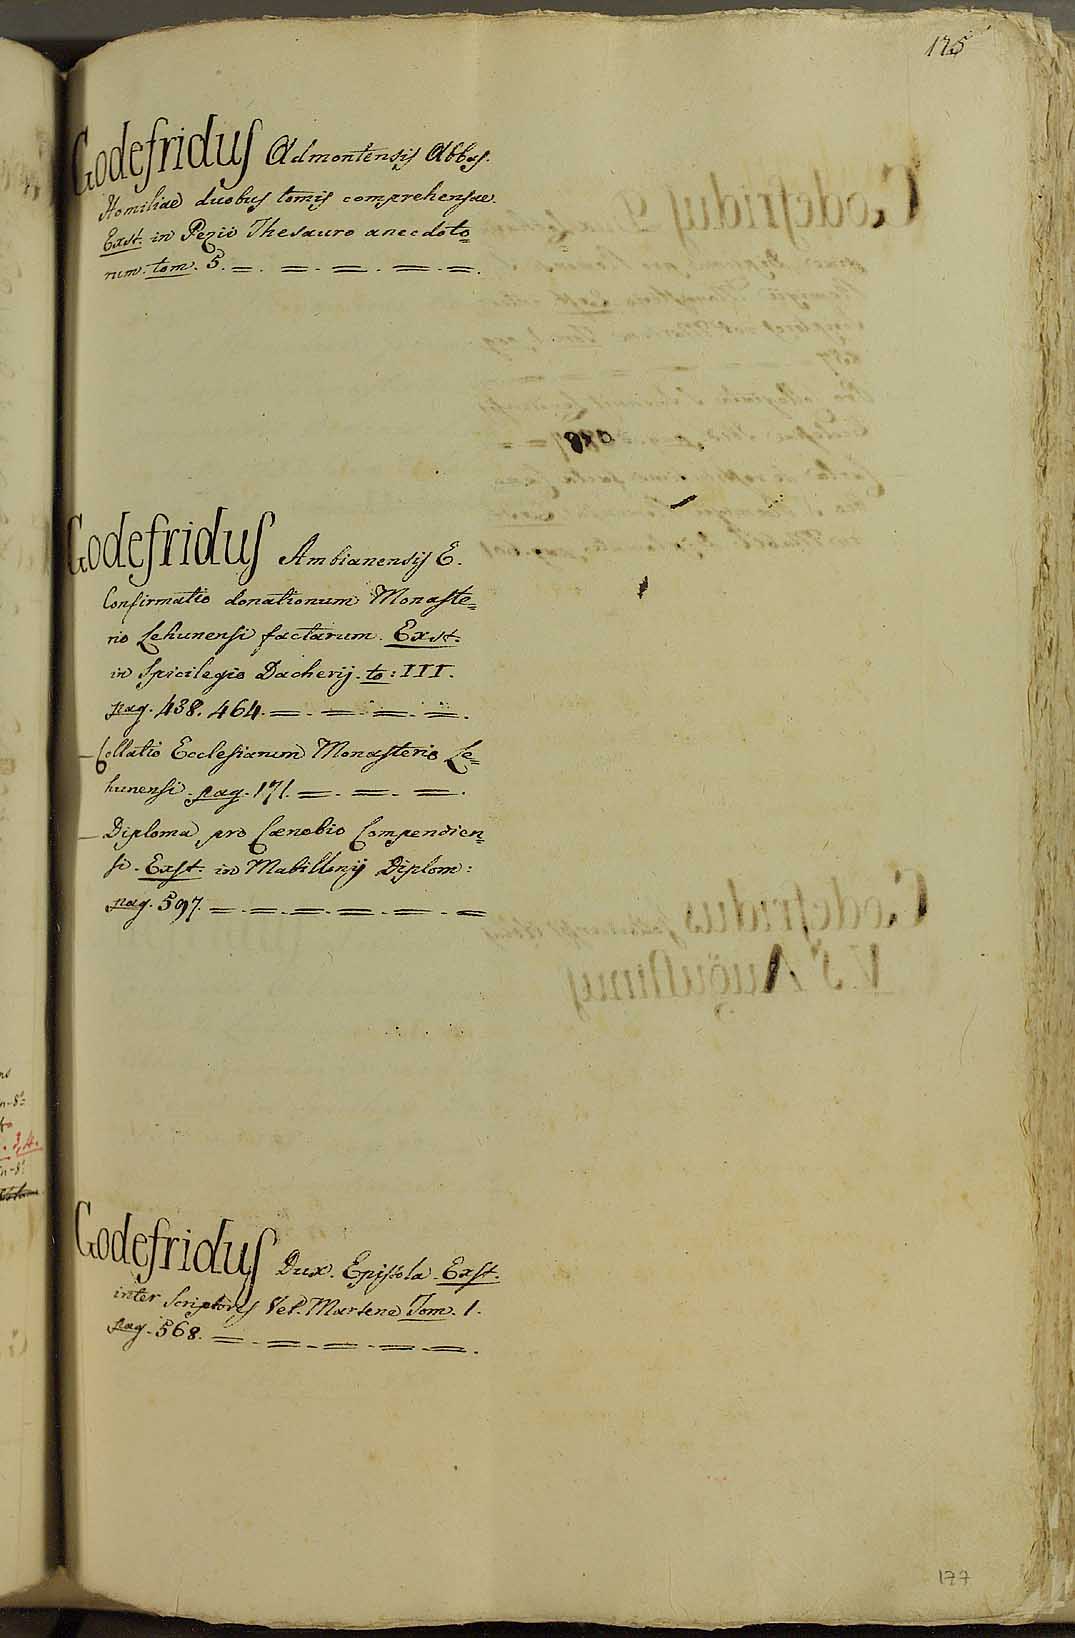 175
Godefridus Admontensis Abbas.
Homiliae duobus tomis comprehensae.
Exst. in Pezio Thesauro anecdoto=
rum. tom. 5. =. =. =. =. =.
Godefridus Ambianensis E.
Confirmatio donationum Monaste=
rio Lehunensi factarum. Exst.
in Spicilegio Dacherij. to: III.
pag. 438. 464. =. =. =. =.
– Collatio Ecclesiarum Monasterio Le=
hunensi. pag. 171. =. =. =.
– Diploma pro Cænobio Compendien=
si. Exst. in Mabillonij Diplom:
pag. 597. =. =. =. =. =. =
Godefridus Dux. Epistola. Exst.
inter Scriptores Vet. Martene Tom. 1.
pag. 568. =. =. =. =. =.
177